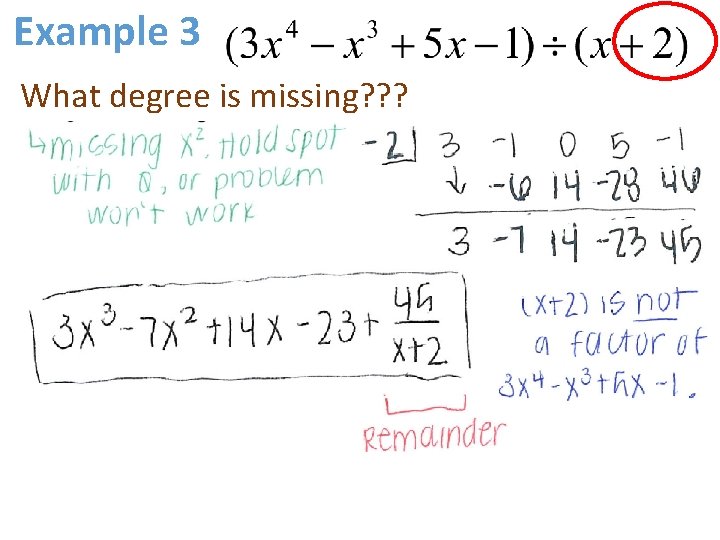 Example 3 (3x⁴ − x³ + 5x − 1) ÷ (x + 2)
What degree is missing???
↳missing x², Hold spot
with 0, or problem
won't work
-2| 3 -1 0 5 -1
↓ -6 14 -28 46
3 -7 14 -23 45
3x³ - 7x² + 14x - 23 + 45/(x+2)
Remainder
(x+2) is not
a factor of
3x⁴ - x³ + 5x - 1.